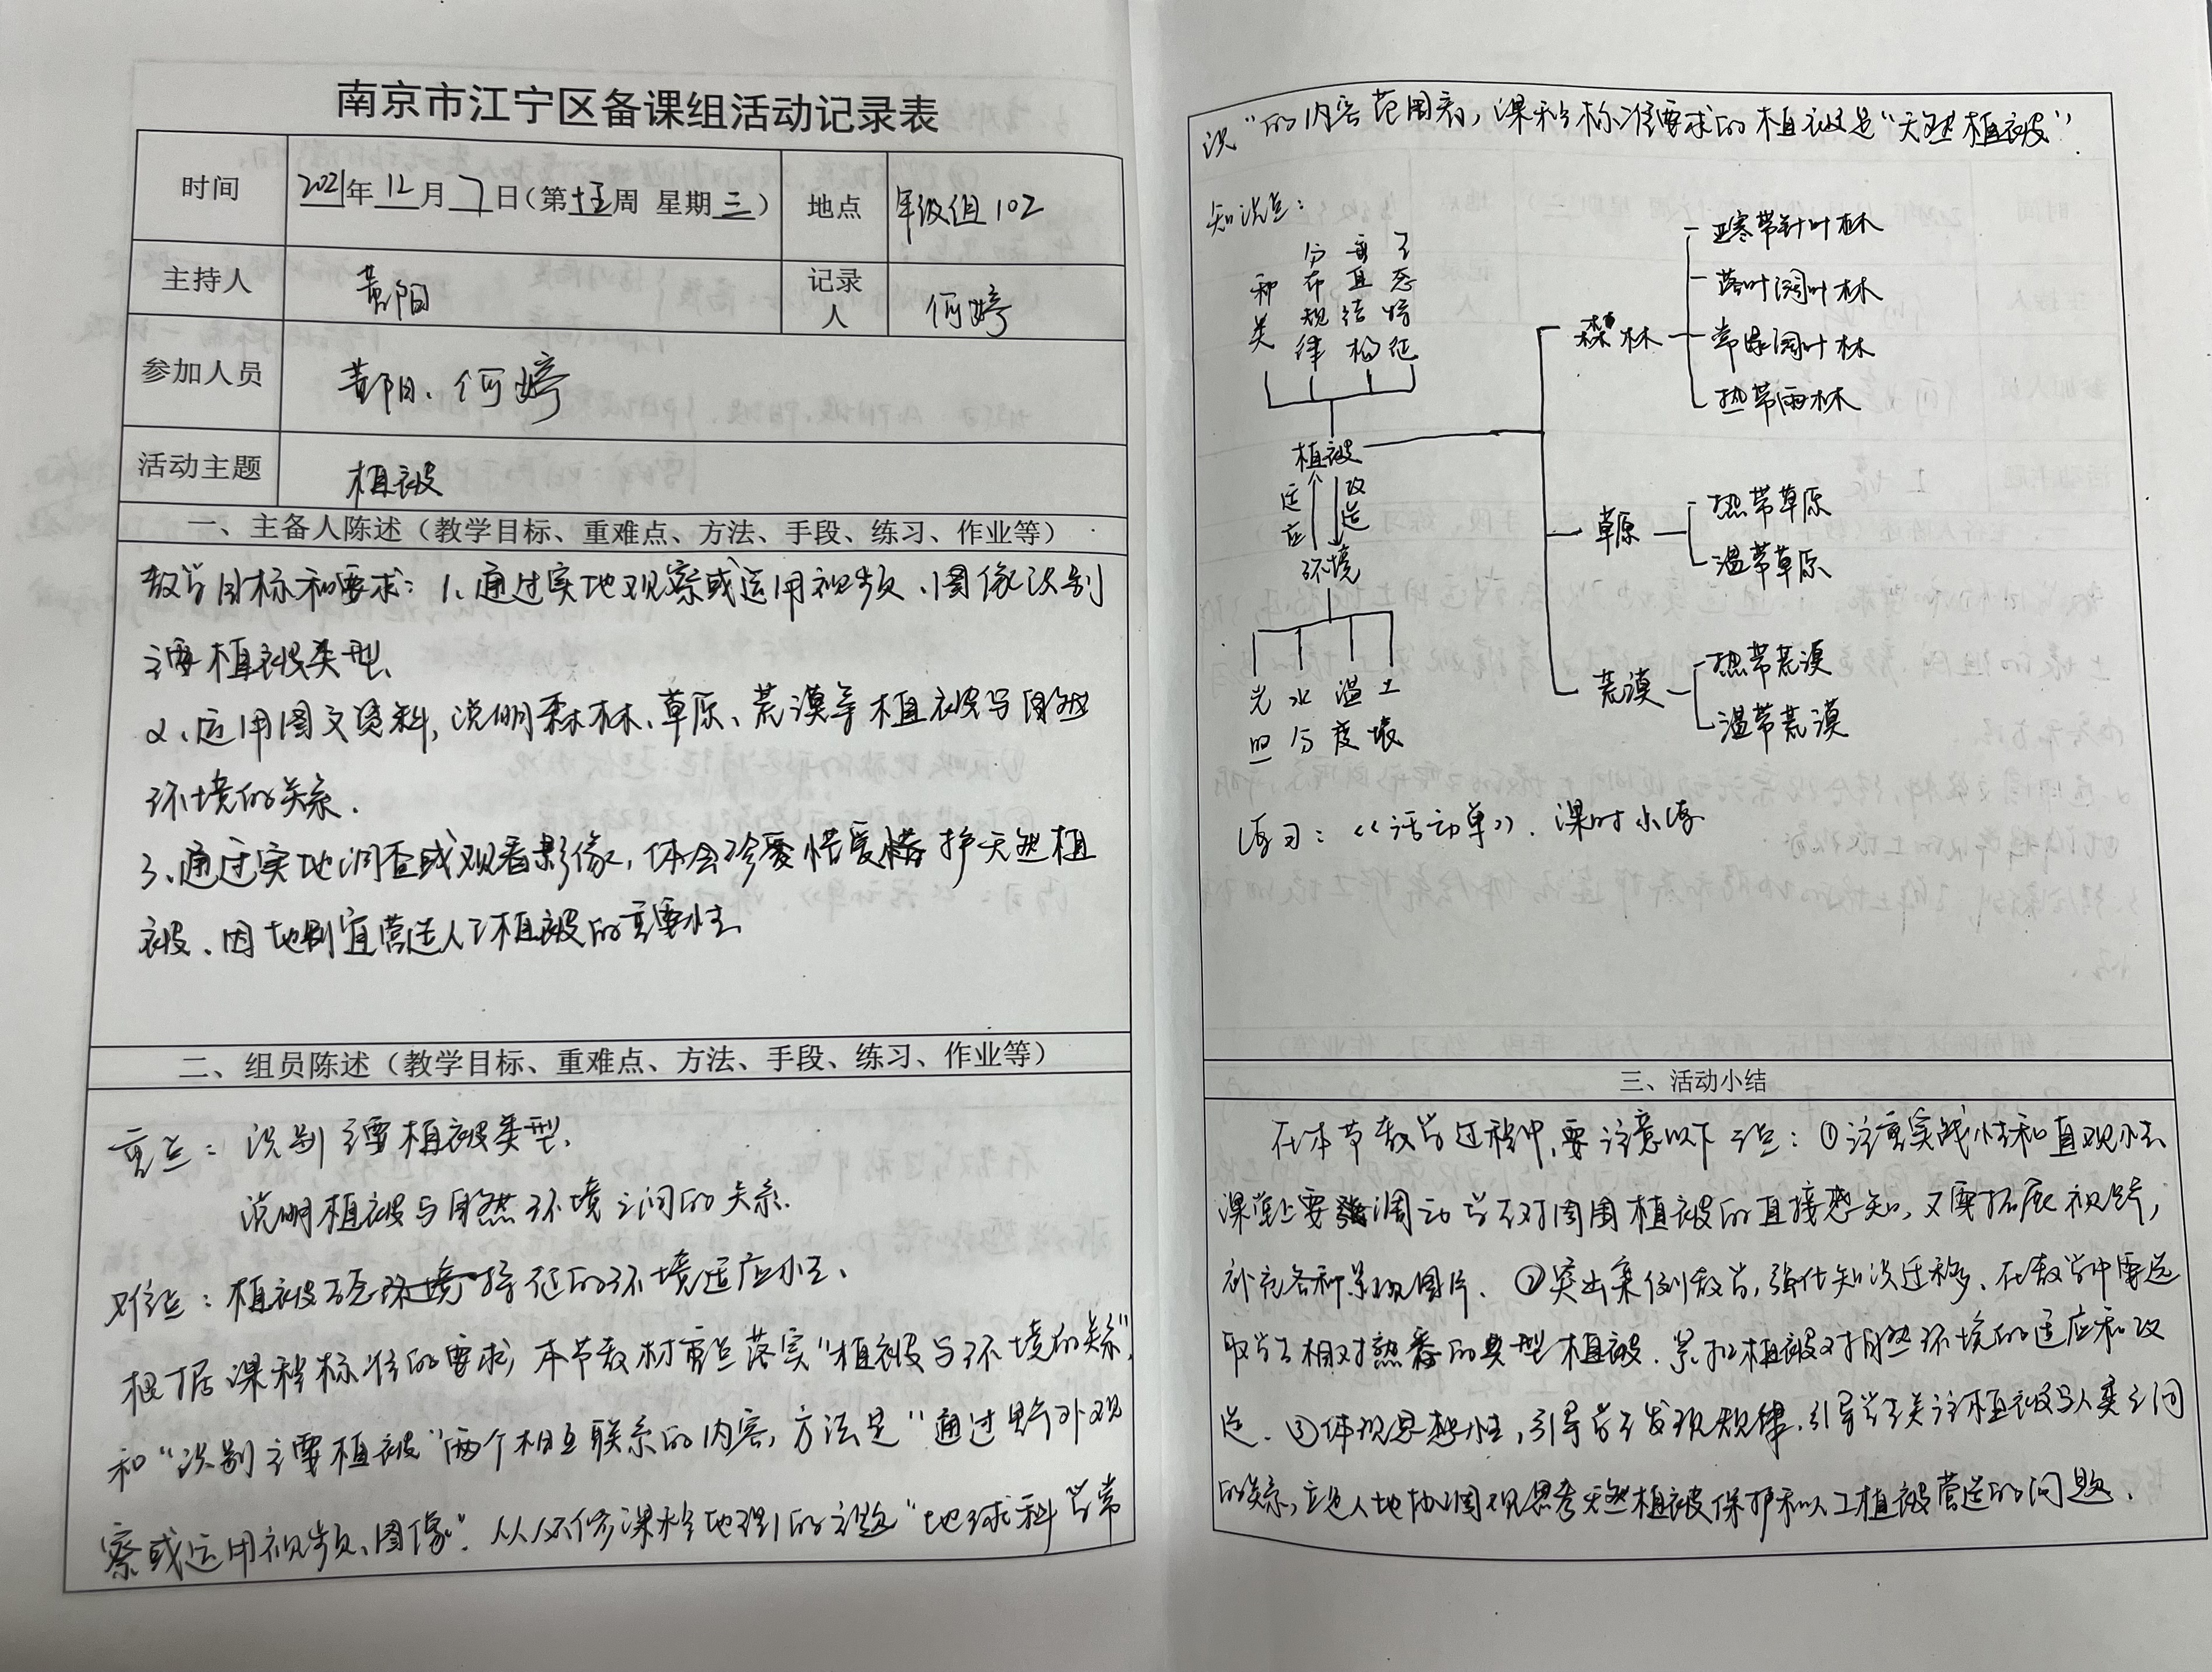 南京市江宁区备课组活动记录表
时间 2021年12月7日(第十五周 星期三) 地点 年级组102
主持人 黄阳 记录人 何婷
参加人员 黄阳、何婷
活动主题 植被
一、主备人陈述（教学目标、重难点、方法、手段、练习、作业等）
教学目标和要求：1、通过实地观察或运用视频、图像识别
主要植被类型、
2、运用图文资料，说明森林、草原、荒漠等植被与自然
环境的关系.
3、通过实地调查或观看影像，体会珍爱惜爱护天然植
被、因地制宜营造人工植被的重要性
二、组员陈述（教学目标、重难点、方法、手段、练习、作业等）
重点：识别主要植被类型.
说明植被与自然环境之间的关系.
难点：植被特征的环境适应性、
根据课程标准的要求，本节教材重点落实“植被与环境的关系”
和“识别主要植被”两个相互联系的内容，方法是“通过野外观
察或运用视频、图像”. 从必修课程地理1的主题“地球科学常
识”的内容范围看，课程标准要求的植被是“天然植被”.
知识点：
种类 分布规律 垂直结构 生态特征
植被
适应 改造
环境
光照 水分 温度 土壤
森林
亚寒带针叶林
落叶阔叶林
常绿阔叶林
热带雨林
草原
热带草原
温带草原
荒漠
热带荒漠
温带荒漠
练习：《活动单》. 课时小练
三、活动小结
在本节教学过程中，要注意以下三点：①注重实践性和直观性
课堂上要调动学生对周围植被的直接感知，又要拓展视野，
补充各种景观图片. ②突出案例教学，强化知识迁移. 在教学中要选
取学生相对熟悉的典型植被. 紧扣植被对自然环境的适应和改
造. ③体现思想性，引导学生发现规律. 引导学生关注植被与人类之间
的关系，立足人地协调观思考天然植被保护和人工植被营造的问题.